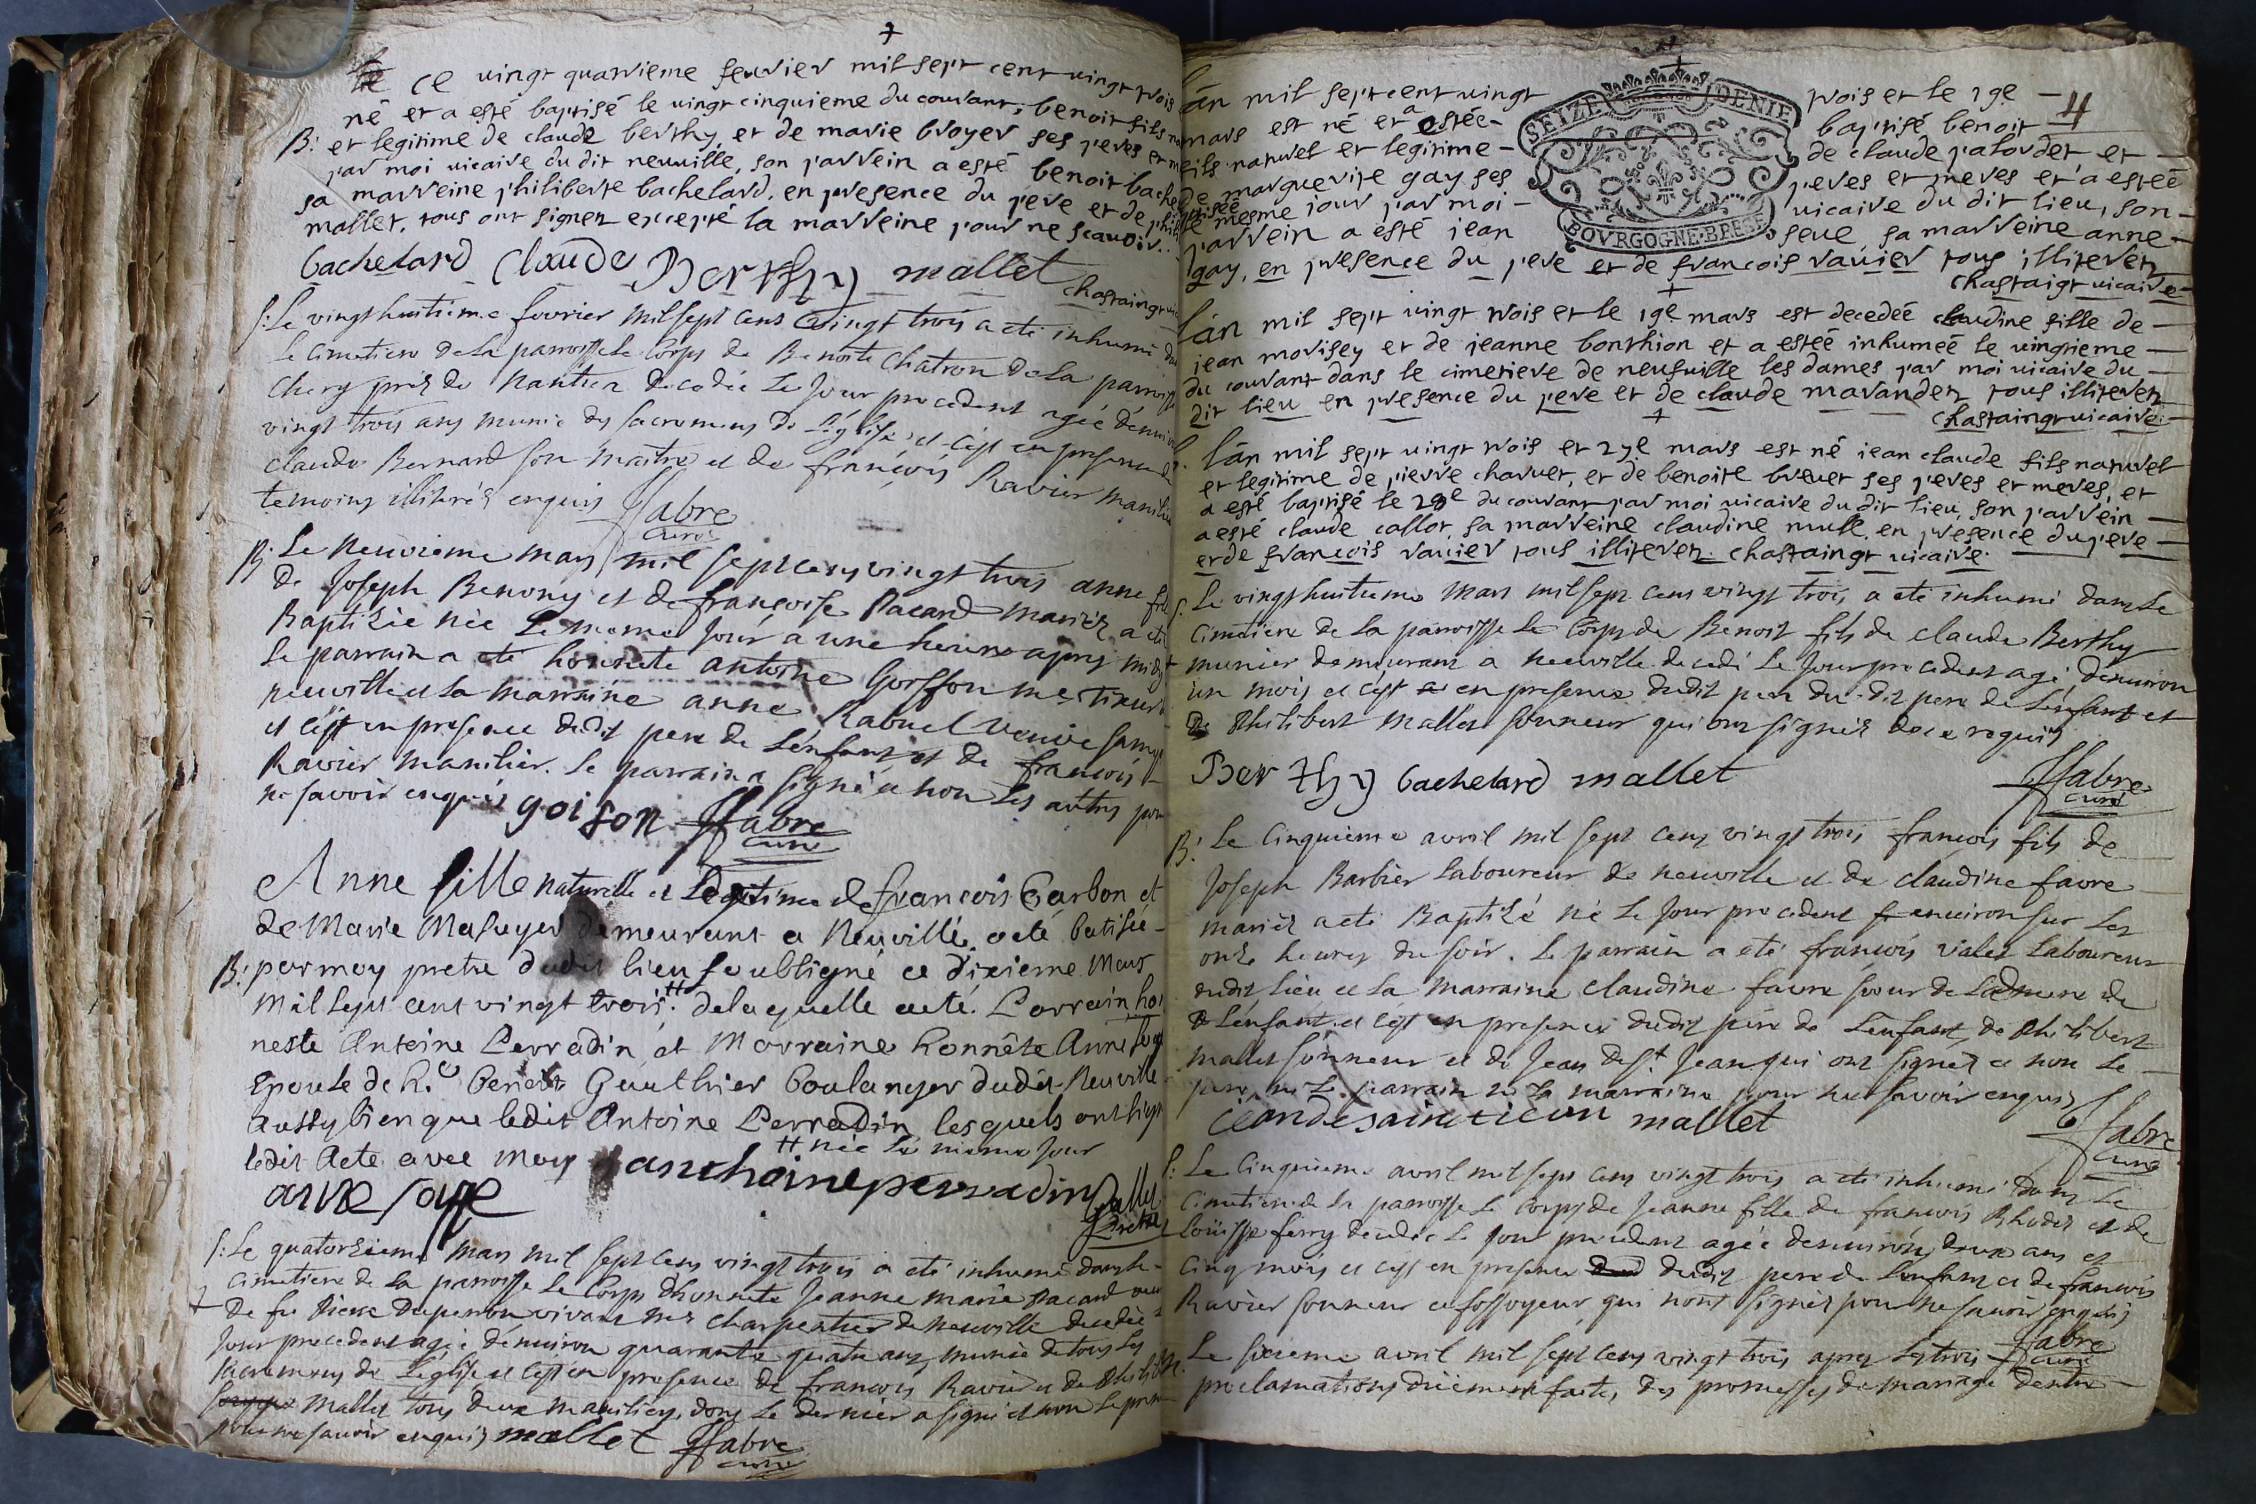 ce vingt quatrieme fevrier mil sept cent vingt trois
né et a esté baptisé le vingt cinquieme du courant, benoit fils
B: et legitime de claude berthy, et de marie broyer ses peres et
par moi vicaire du dit neuville, son parrein a esté benoit
sa marreine philiberte bachelard, en presence du pere et de
mallet, tous ont signez excepté la marreine pour ne scauoir.
bachelard claude Berthy mallet
chastaingt
S: Le vingt huitieme fevrier mil sept cens vingt trois a eté inhumé
le cimetiere de la parroisse le corps de Benoite Chatron de la parroisse
Chery près de Nantua decedée le jour precedent agée d'environ
vingt trois ans munie des sacremens de l'église et c'est en presence
claude Bernard son maitre et de françois Ravier
temoins illitérés enquis ffabre
curé
B: Le neuvieme mars mil sept cens vingt trois anne
de Joseph Benony et de françoise Pacard mariés a eté
Baptisée née le meme jour a une heure apres midy
le parrain a eté honnete antoine Goisson
neuville et la marraine anne Rabuel veuve
et c'est en presence dudit pere de l'enfant et de françois
Ravier manilier. le parrain a signé et non les autres pour
ne savoir enquis goison ffabre
curé
Anne fille naturelle et Legitime de françois Carbon et
de Marie Masuyer demeurant a Neuville a eté batisée
B: par moy pretre dudit lieu soubsigné ce dixieme Mars
mil sept cent vingt trois # de laquelle a eté Parrain ho
neste Antoine Perradin et Marraine honnête Anne
Epouse de h. Benoit Gauthier Boulanger dudit Neuville
aussy bien que ledit Antoine Perradin lesquels ont
ledit Acte avec moy # née le meme jour
anthoine perradin
anne
Pretre
S: Le quatorsieme mars mil sept cens vingt trois a eté inhumé dans le
cimetiere de la parroisse le corps d'honnete Jeanne marie Pacard
de fu Pierre Duperron vivant Mre Charpentier de Neuville decedée
jour precedent agée d'environ quarante quatre ans munie de tous les
sacremens de l'église et c'est en presence de françois Ravier et de
mallet tous deux maniliers, dont le dernier a signé et non le
pour ne savoir enquis mallet ffabre
curé
4
SEIZE DENIE
BOVRGOGNE BRESSE
lán mil sept cent vingt trois et le 19e
mars est né et a estée baptisé benoit
fils naturel et legitime de claude palordet et
de marguerite gay ses peres et meres et a estée
le mesme jour par moi vicaire du dit lieu, son
parrein a esté jean seue, sa marreine anne
gay, en presence du pere et de francois ravier tous illiterez
chastaigt vicaire
lán mil sept vingt trois et le 19e mars est decedée claudine fille de
jean morisey et de jeanne bonthion et a estée inhumée le vingtieme
du courant dans le cimetiere de neufville les dames par moi vicaire du
dit lieu en presence du pere et de claude marandez tous illiterez
chastaingt vicaire
lán mil sept vingt trois et 27e mars est né jean claude fils naturel
et legitime de pierre charvet, et de benoite brevet ses peres et meres, et
a esté baptisé le 28e du courant par moi vicaire du dit lieu, son parrein
a esté claude callot, sa marreine claudine mull en presence du pere
et de francois ravier tous illiterez. chastaingt vicaire.
S. Le vingt huitieme mars mil sept cens vingt trois, a eté inhumé dans le
Cimetiere de la parroisse le corps de Benoit fils de claude Berthy
munier demeurant a neuville decedé le jour precedent agé d'environ
un mois et c'est en presence dudit pere du dit pere de l'enfant et
de Philibert Mallet sonneur qui ont signés de ce requis
Berthy bachelard mallet
ffabre
curé
B: Le Cinquieme avril mil sept cens vingt trois françois fils de
Joseph Barbier Laboureur de neuville et de claudine favre
mariés a eté Baptisé né le jour precedent environ sur les
onze heures du soir. le parrain a eté françois Valet Laboureur
dudit lieu et la marraine claudine favre soeur de la mere de
l'enfant et c'est en presence dudit pere de l'enfant de Philibert
mallet sonneur et de Jean de St. Jean qui ont signés et non le
pere ni le parrain ni la marraine pour ne savoir enquis
mallet
ffabre
curé
S: Le Cinquieme avril mil sept cens vingt trois a eté inhumé dans le
Cimetiere de la parroisse le corps de Jeanne fille de francois Rhodet et de
Louisse ferry decedée le jour precedent agée d'environ deux ans et
cinq mois et c'est en presence dudit pere de l'enfant et de francois
Ravier sonneur et fossoyeur qui n'ont signés pour ne savoir enquis
ffabre
curé
Le sixieme avril mil sept cens vingt trois apres les trois
proclamations düement faites des promesses de mariage d'entre